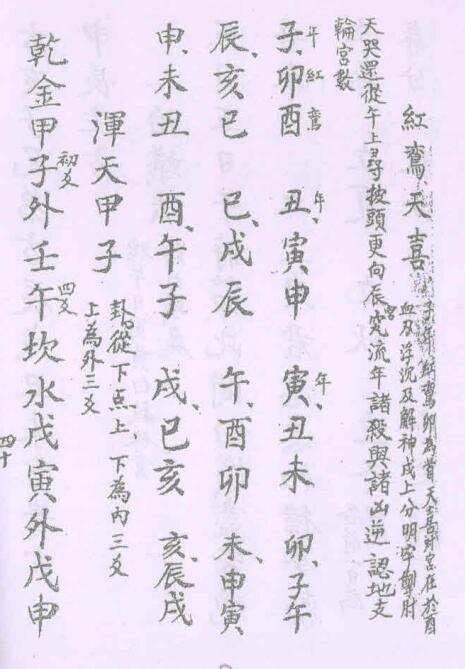 紅鸞天喜 子年紅鸞卯為首天喜對宮在於酉
血刃浮沉及解神戌上分明牢掣肘
天哭還從午上尋披頭更向辰宮究流年諸殺與諸凶逆認地支
輪宮數
子年卯紅酉鸞 丑年寅申 寅年丑未 卯子午
辰亥巳 巳戌辰 午酉卯 未申寅
申未丑 酉午子 戌巳亥 亥辰戌
渾天甲子 卦從下点上下為內三爻
上為外三爻
乾金甲子初爻外壬午四爻坎水戊寅外戊申
四十